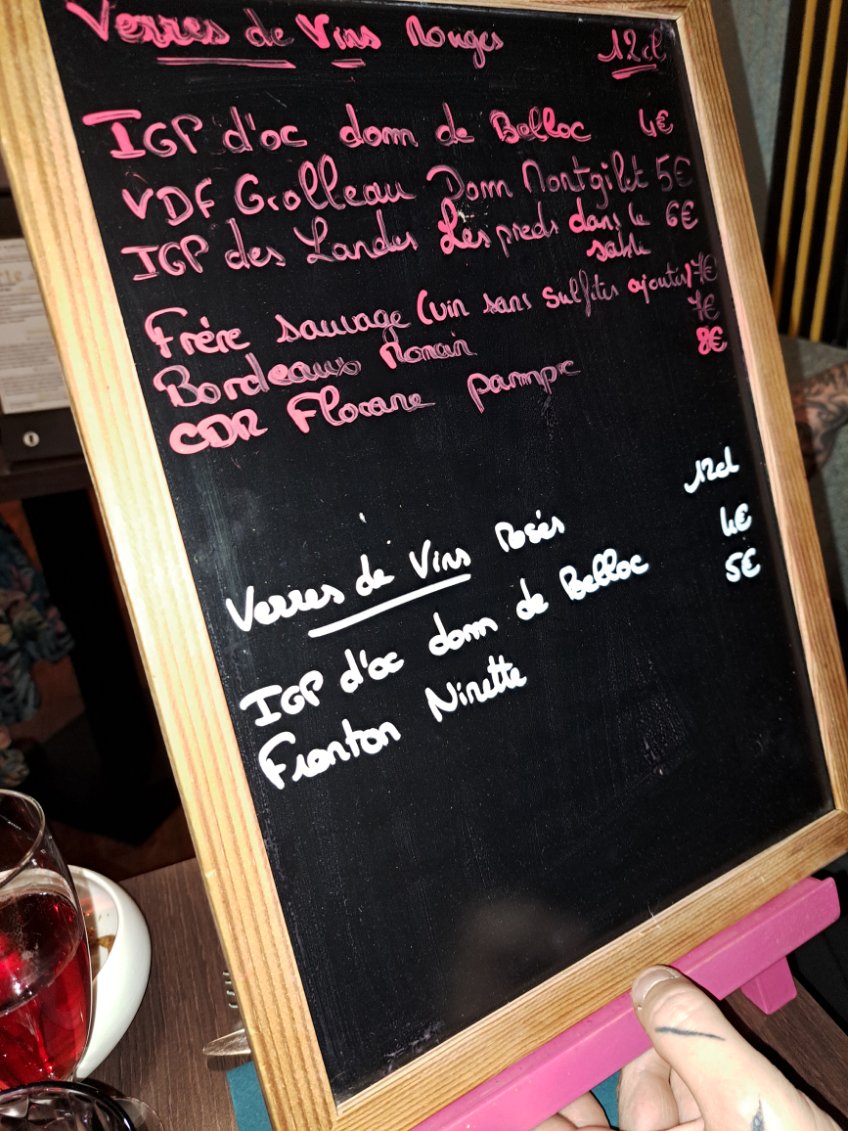 Verres de Vins Rouges 12cl
IGP d'oc dom de Belloc 4€
VDF Grolleau Dom Montgilet 5€
IGP des Landes Les pieds dans le sable 6€
Frère sauvage (vin sans sulfites ajoutés) 7€
Bordeaux 7€
CDR Florane pampre 8€
Verres de Vins Rosés 12cl
IGP d'oc dom de Belloc 4€
Fronton Ninette 5€